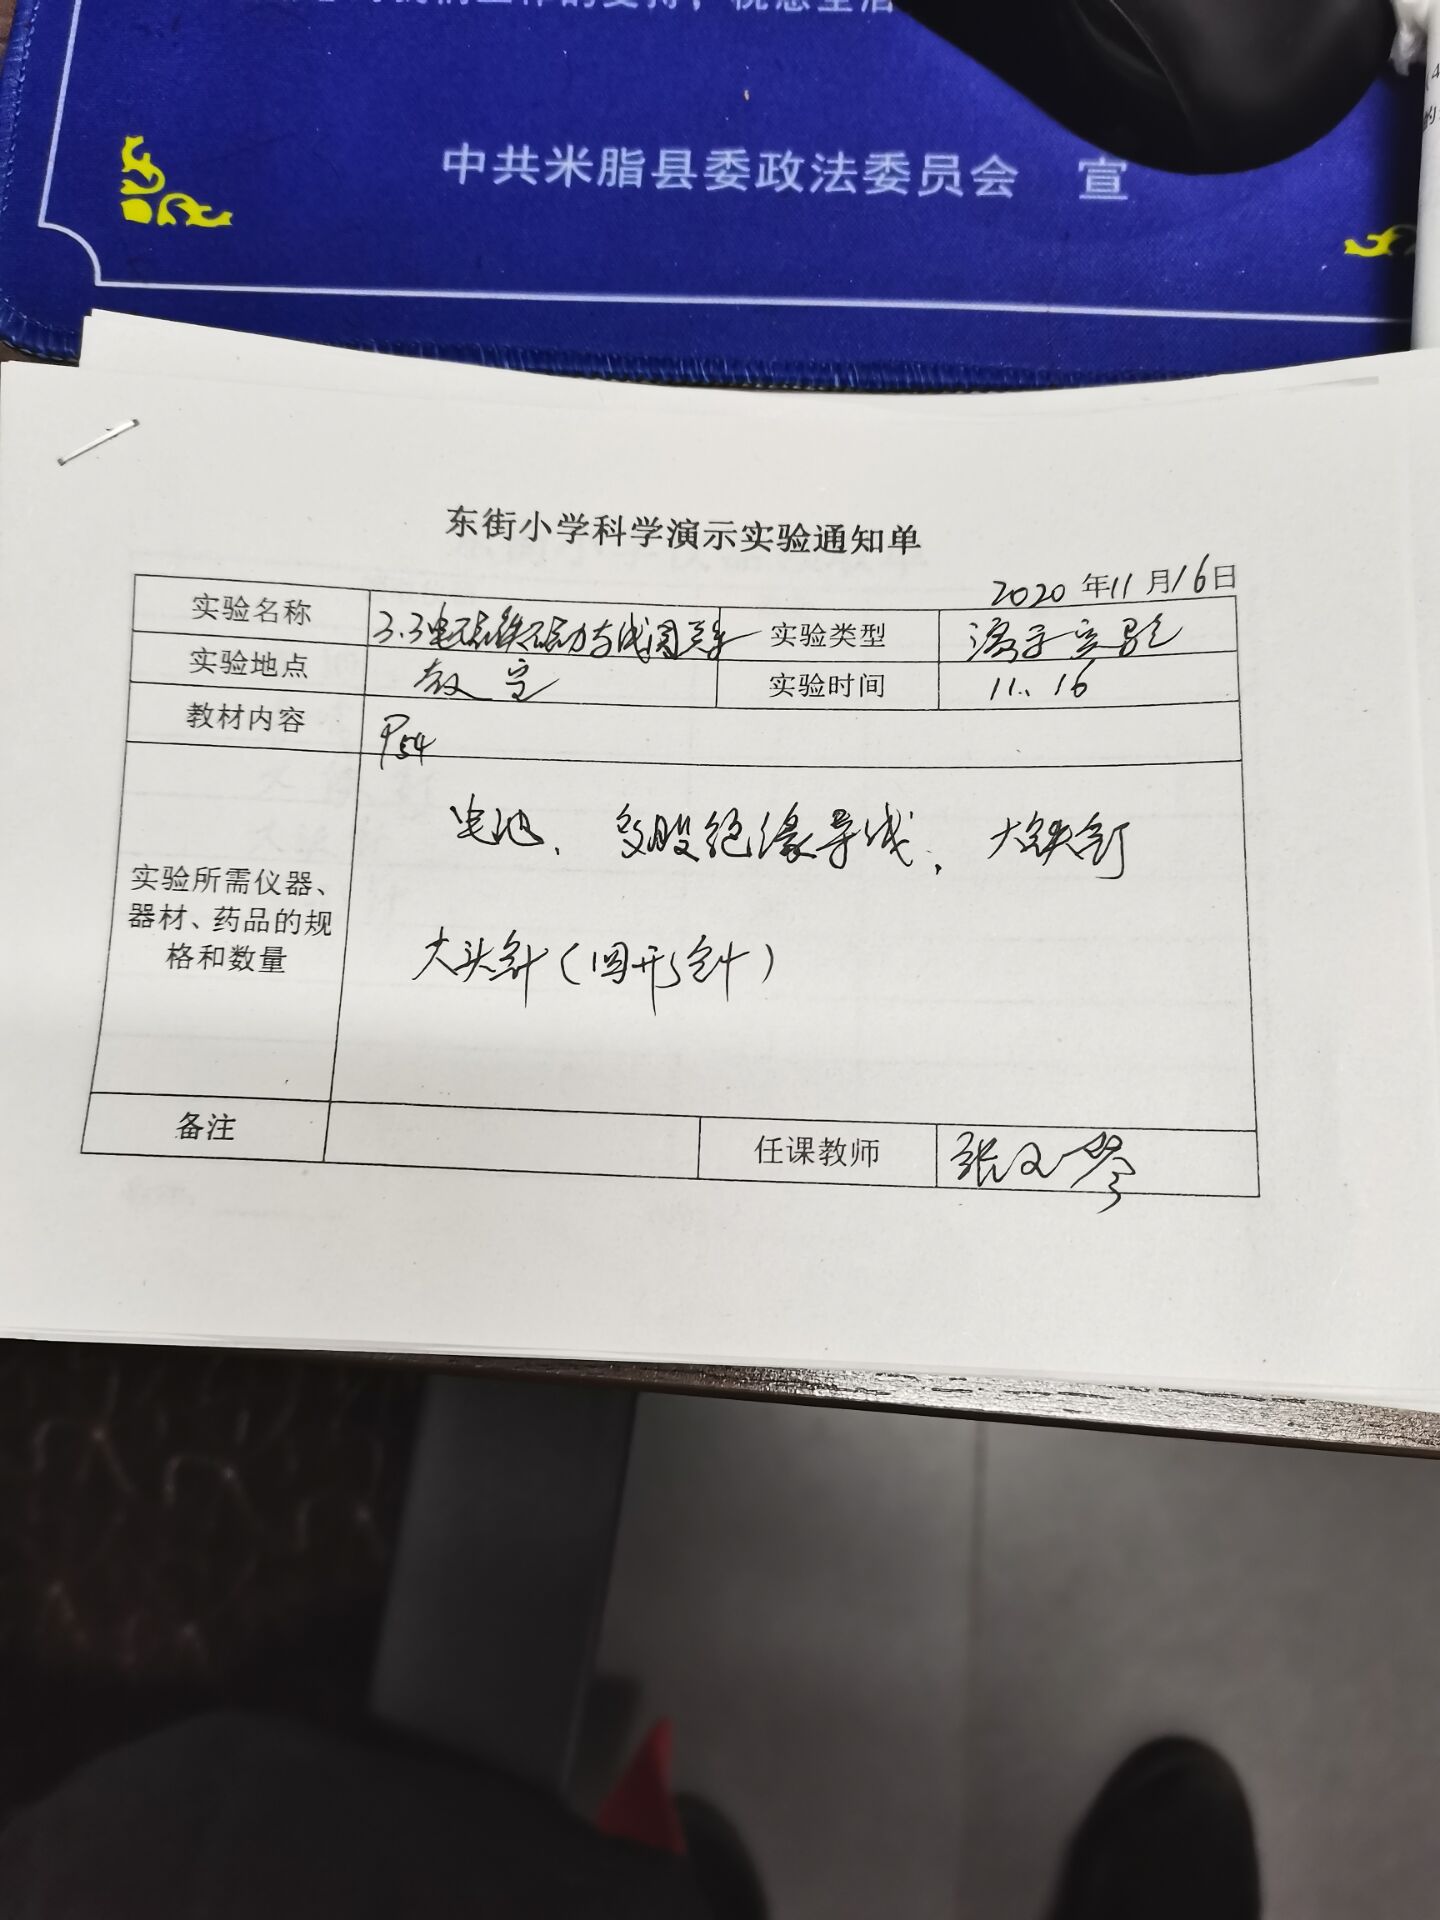 中共米脂县委政法委员会 宣
东街小学科学演示实验通知单
2020 年 11 月 16 日
实验名称 3.3电磁铁磁力与线圈关系 实验类型 演示实验
实验地点 教室 实验时间 11.16
教材内容 P54
电池、多股绝缘导线、大铁钉
实验所需仪器、
器材、药品的规
格和数量
大头针(回形针)
备注 任课教师 张文琴